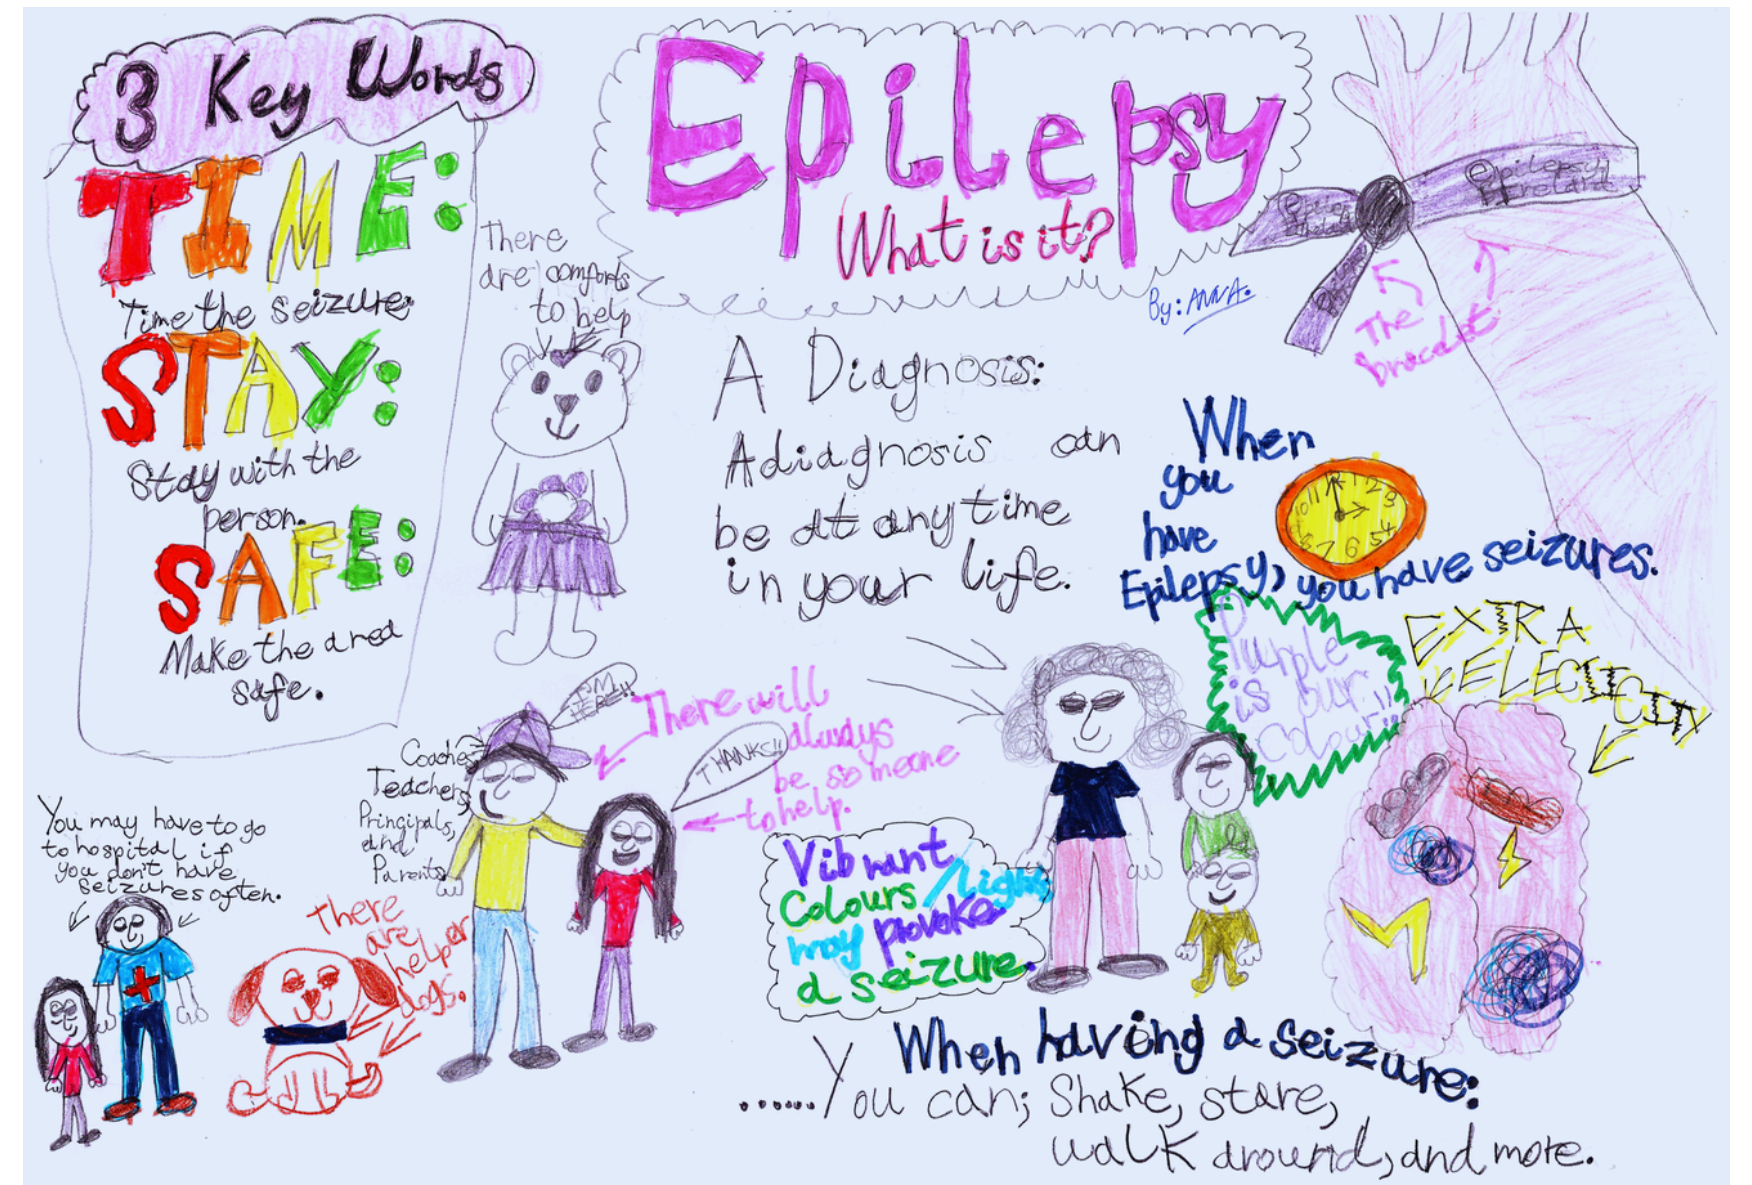 3 Key Words
TIME:
Time the seizure.
STAY:
Stay with the
person.
SAFE:
Make the area
safe.
There
are comforts
to help
Epilepsy
What is it?
By: ANNA.
Epilepsy
The
bracelet
A Diagnosis:
A diagnosis can
be at any time
in your life.
When
you
have
Epilepsy, you have seizures.
11 12 1 2 3
10 4
8 7 6 5
Purple
is our
colour!!
EXTRA
ELECTICITY
I'M
HERE!!
There will
always
be someone
to help.
THANKS!!
Coaches,
Teachers,
Principals,
and
Parents
You may have to go
to hospital if
you don't have
seizures often.
There
are
helper
dogs.
Vibrant
Colours/Lights
may provoke
a seizure.
When having a seizure:
......You can; Shake, stare,
walk around, and more.